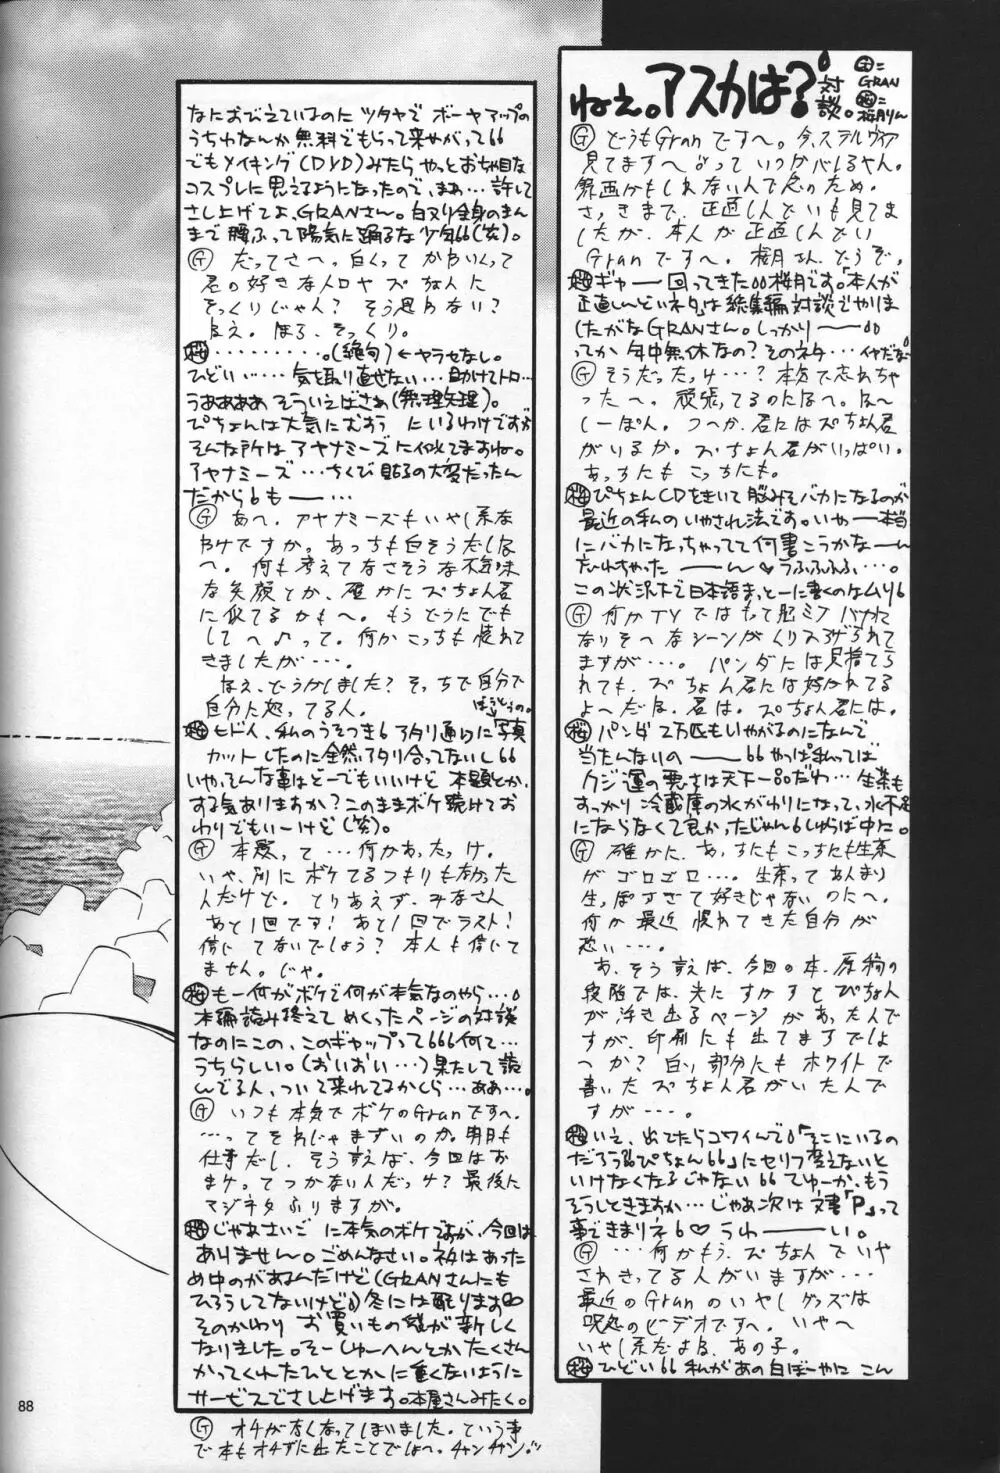 ねぇ。アスカは?対談。
Ⓖ=GRAN
桜=桜月りん
Ⓖ どうもGranですへ。今、ステルヴィア
見てますへ
さっきまで、正直しんどいも見てま
したが、本人が正直しんどい
Granですへ。桜月さん、どうぞ。
桜 ギャー── 回ってきた00桜月です。「本人が
正直しんどいネタ」は総集編対談でやりま
したがなGRANさん。しっかり──
ってか 年中無休なの?そのネタ…イヤだな
Ⓖ そうだったっけ…?本気で忘れちゃ
ったへ。頑張ってるのになへ。な〜
しーぽん。つへか、君にはぴちょん君
がいるか。ぴちょん君がいっぱい。
あっちにもこっちにも。
桜 ぴちょんCDをきいて脳みそバカになるのが
最近の私のいやされ法です。いやー本当
にバカになっちゃってて何書こうかな──ん
忘れちゃった ──ん♡うふふふふ…。
この状況下で日本語まっとーに書くのはムリ6
Ⓖ 何かTVではもって脳ミソバカに
なりそへなシーンがくり広げられて
ますが…。パンダには見捨てら
れても、ぴちょん君には好かれてる
よへだな、君は。ぴちょん君には。
桜 パンダ 2万匹もいやがるのになんで
当たんないの ──66やっぱ私ってば
クジ運の悪さは天下一品だわ… 生茶も
すっかり 冷蔵庫の水がわりになって、水不足
にならなくて良かったじゃん6しゅらば中に。
Ⓖ 確かに、あっちにもこっちにも生茶
がゴロゴロ…。生茶ってあんまり
生っぽすぎて好きじゃないのにへ。
何か最近 慣れてきた自分が
恐い…。
あ、そう言えば、今回の本、原稿の
段階では、光にすかすとぴちょん
が浮き出るページがあったんで
すが、印刷にも出てますでしょ
へか?白い部分にもホワイトで
書いたぴちょん君がいたんで
すが…。
桜 いえ、出てたらコワイんで6「そこにいるの
だろう ぴちょん66」にセリフ変えないと
いけなくなるじゃない66てゆーか、もう
そうしときますか…じゃあ次は文書「P」って
事できまりネ6♡うわ────い。
Ⓖ …何かもう、ぴちょんでいや
されきってる人がいますが…
最近のGranのいやしグッズは
呪怨のビデオですへ。いやへ
いやし系だよね、あの子。
桜 ひどい66 私があの白ぼーやに こん
なにおびえているのに ツタヤで ボーヤアップの
うちわなんか無料でもらって来やがって66
でもメイキング(DVD)みたら、やっとおちゃ目な
コスプレに思えるようになったので、まぁ…許して
さし上げてよ、GRANさん。白ヌリ全身のまん
まで 腰ふって陽気に踊るな少年66(笑)。
Ⓖ だってさへ。白くってかわいくって
君の好きな人ロヤ ぴちょんに
そっくりじゃん?そう思わない?
ねえ。ほら、そっくり。
桜 ………。(絶句)←ヤラセなし。
ひどい…… 気を取り直せない…助けてトロ…
うああああ そういえばさぁ(無理矢理)。
ぴちょんは大気におおう にいるわけですが
そんな所はアヤナミーズに似てますね。
アヤナミーズ …ちくび貼るの大変だったん
だから6も──…
Ⓖ あへ、アヤナミーズもいやし系な
わけですか。あっちも白そうだしな
へ。何も考えてなさそうな不気味
な笑顔とか、確かにぴちょん君
に似てるかもへ。もうどうにでも
してへ♪って。何かこっちも慣れて
きましたが…。
なえ、どうかしました?そっちで自分で
自分に怒ってる人。
桜 ヒドイ、私のうそつき6 アタリ通りに写真
カットしたのに全然アタリ合ってないし66
いや、そんな事はどーでもいいけど 本題とか、
する気ありますか?このままボケ続けてお
わりでもいーけど(笑)。
Ⓖ 本題って…何かあったっけ。
いや、別にボケてるつもりも無かった
んだけど。とりあえず、みなさん
あと1回です!あと1回でラスト!
信じてないでしょう?本人も信じて
ません。じゃ。
桜 もー何がボケで何が本気なのやら…6
本編読み終えて めくったページの対談
なのにこの、このギャップって666何て…
うちらしい。(おいおい…)果たして読
んでる人、ついて来れてるかしら…ああ…。
Ⓖ いつも本気でボケのGranですへ。
…ってそれじゃまずいのか。明日も
仕事だし。そう言えば、今回はお
まけってつかないんだっけ?最後に
マジネタふりますが。
桜 じゃあさいごに本気のボケですが、今回は
ありません。ごめんなさい。ネタはあった
め中のがあるんだけど(GRANさんにも
ひろうしてないけど6)冬には配ります
そのかわり お買いもの袋が新しく
なりました。そーしゅーへんとかたくさん
かってくれたひととかに重くないように
サービスでさし上げます。本屋さんみたく。
Ⓖ オチがなくなってしまいました。という事
で本もオチずに出たことでしょへ。チャンチャン。
88